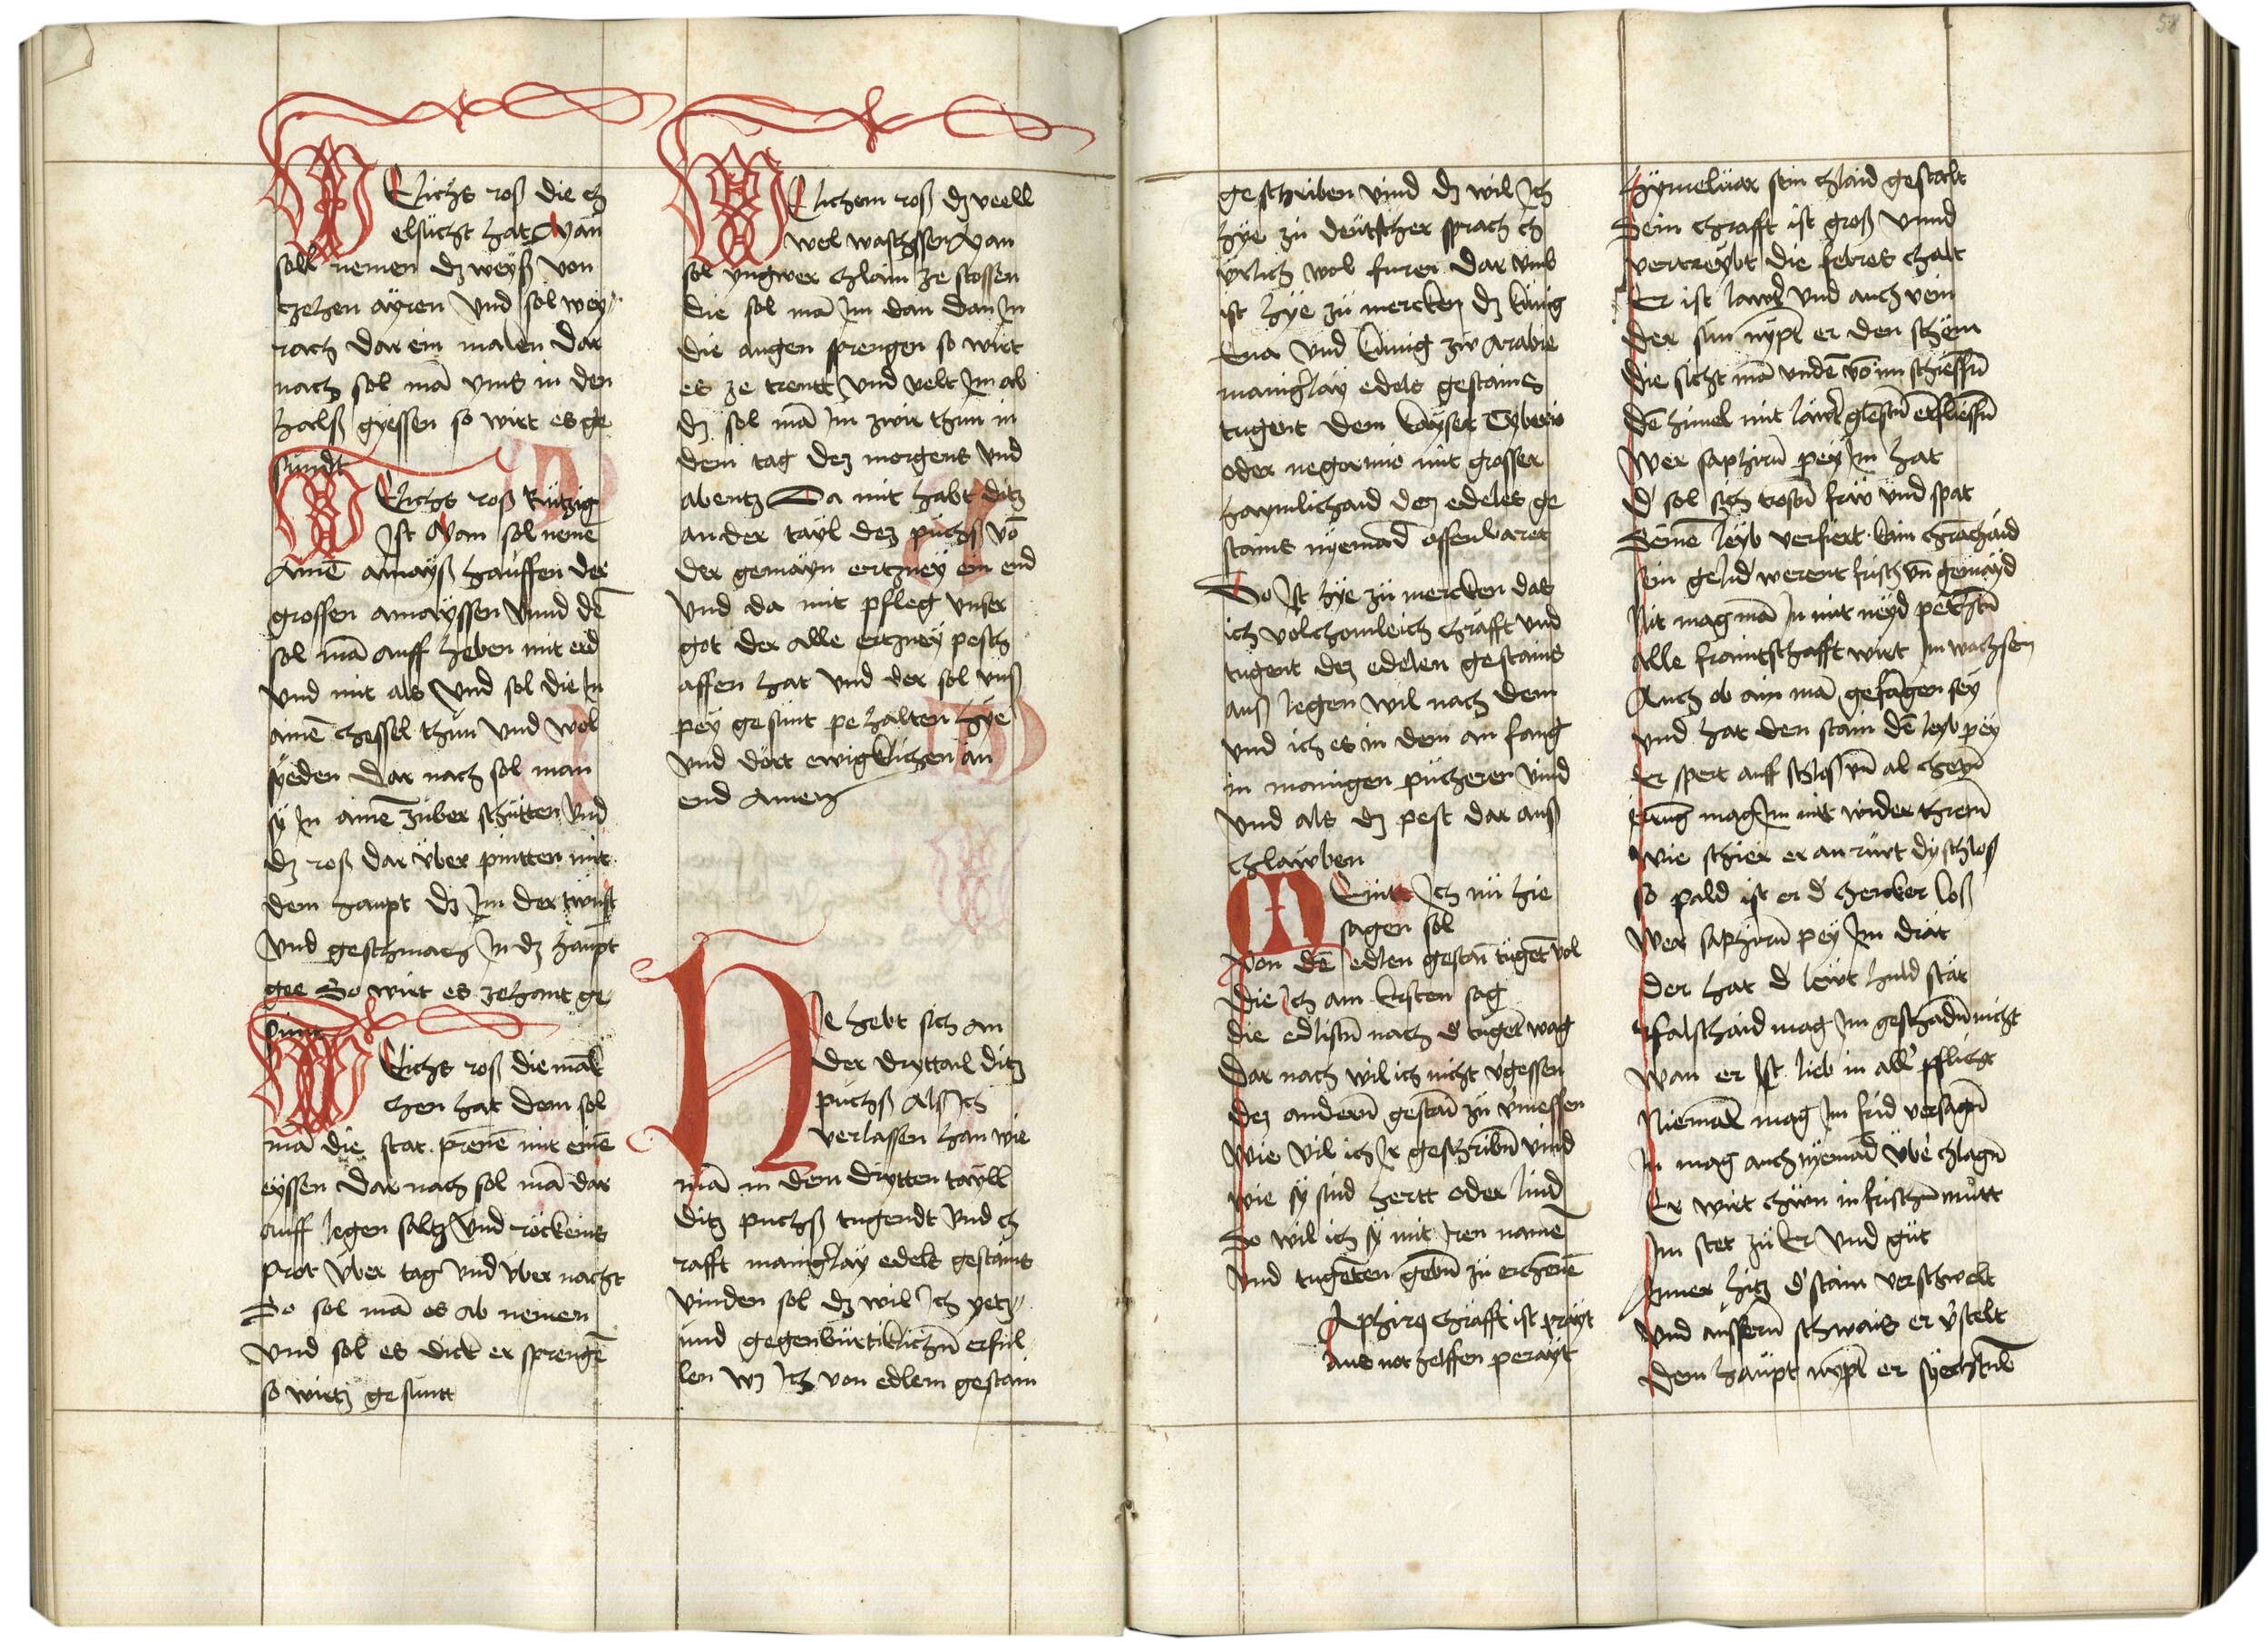 WElichs roß die ch
elsücht hat Man
soll nemen dz weyß von
zehen ayren und sol wey
rach dar ein malen dar
nach sol mā yms in den
halß gyessen so wirt es ge
sundt
WElichs roß Rützig
Ist Man sol nemē
Ainē amayß hauffen der
grossen amayssen vnnd dē
sol mā auff heben mit erd
vnd mit als vnd sol die in
ainē chessel thun vnd wol
syeden dar nach sol man
sy In ainē zuber schütten vnd
dz roß dar über pintten mit
dem haupt dz Im der twnst
vnd geschmach In dz haupt
gee So wirt es zehant ge
sunt
WElichs roß die
chen hat dem sol
mā die stat prenē mit einē
eyssen dar nach sol mā dar
auff legen saltz vnd röckeins
prot vber tag vnd vber nacht
So sol mā es ab nemen
vnd sol es dick er sprengē
so wirtz gesuntt
WElichem roß dz veell
wel waschssen Man
sol yngwer chlain ze stossen
die sol mā Im dan dan In
die augen sprengen so wirt
es ze trentt vnd velt Im ab
dz sol mā im zwir thun in
dem tag dez morgens vnd
abentz Da mit habt ditz
ander tayl dez püchß vō
der gemayn ertzney ein end
vnd da mit pfleg vnser
got der alle ertzney pesch
affen hat vnd der sol vnß
pey gesunt pe halten hye
vnd dört ewigklichen an
end Amen
HIe hebt sich an
der dryttail ditz
puchß Als Ich
verlassen han wie
mā in dem drytten tayll
ditz puchß tugendt vnd ch
rafft manigrlay edels gestains
vinden sol dz wil Ich yetz
und gegenbürtiklichn̄ erfül
len wz Ich von edlem gestain
geschriben vind dz wil Ich
hye zu deütscher sprach ch
ürlich wol furen Dar vmb
ist hye zu mercken dz künig
Eua vnd künig zw Arabie
manigrlay edels gestains
tugent dem kayser Tyberio
oder negormio mit grosser
haymlichaid dez edeles ge
stains nyemād offenbaret
So Ist hye zu mercken das
ich volchomleich chrafft vnd
tugent dez edelen gestains
auß legen wil nach dem
vnd ich es in dem an fang
in manigen pücheren vind
vnd als dz pest dar auß
chlawben
MEintt Ich nü hie
sagen sol
Von dē edlen gestaī tugēt vol
die Ich am Ersten sag
die edlistn̄ nach d' tugēt wag
Dar nach wil ich nicht v'gessen
dez anderen gestaī zu v'messen
Wie vil ich Ir geschribn̄ vind
wie sy sind hertt oder lind
So wil ich sy mit Iren namē
vnd tugeten gebn̄ zu erchenē
Aphirꝰ chrafft ist prayt
Aus not helffen perayt
Hymeluar sein chlaid gestalt
Sein chrafft ist groß vnnd
vertreybt die febres chalt
Er ist lawt' vnd auch rein
der sun nypt er den schein
die sicht mā vndē vō im schiessn̄
dē himel mit lawt' glestn̄ erfliessn̄
Wer saphirū pey Im hat
d' sol sich trostn̄ frw vnd spat
Seinē leyb verfiert kain chranchaid
sein gelid' werent frisch vn̄ gemayd
Nit mag mā In mit neyd
alle fraintschafft wirt Im wachsen
Auch ob ain mā gefāgen sey
vnd hat den stain dē leyb pey
Er spert auff schloß vn̄ al chetn̄
mag Im nit wider
Wie schier er an rürt dy schloß
so pald ist er d' chercker loß
Wer saphirū pey Im drat
der hat d' lewt huld stät
Falschaid mag Im geschadn̄ nicht
Wan er Ist lieb in all' pflicht
Niemāt mag Im frid versagn̄
In mag auch nyemād übe' chlagn̄
Er wirt chün in frischē mutt
Im stet zu Er vnd güt
Inner hitz d' stain verschwelt
vnd ausserm schwais er v'stelt
dem haupt nypt er syechtūb